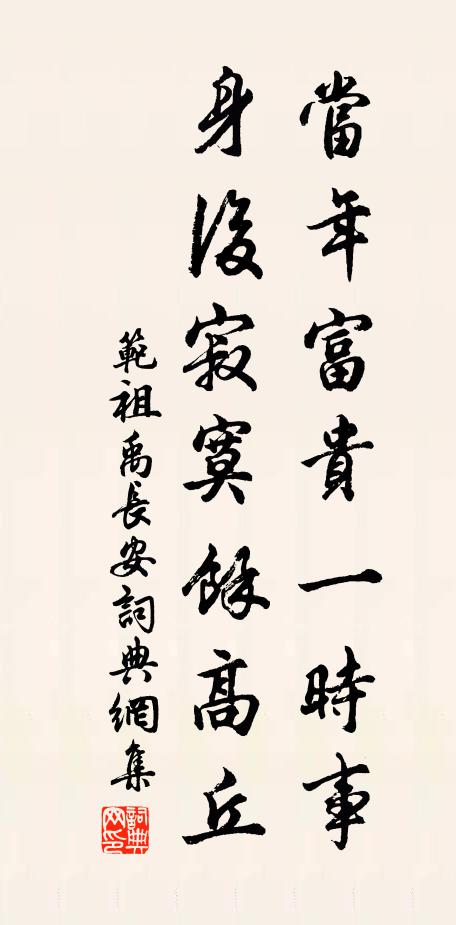 當年富貴一時事
身後寂寞餘高丘
範祖禹長安詞典網集
詞典網印